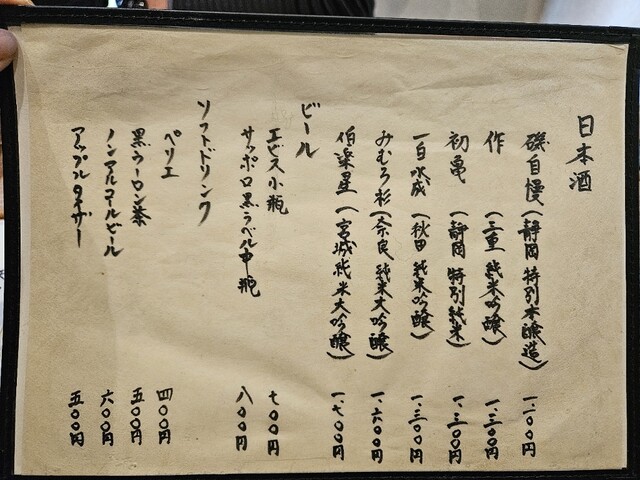 日本酒
磯自慢（静岡 特別本醸造） 一、一〇〇円
作（三重 純米吟醸） 一、三〇〇円
初亀（静岡 特別純米） 一、三〇〇円
一白水成（秋田 純米吟醸） 一、三〇〇円
みむろ杉（奈良 純米大吟醸） 一、六〇〇円
伯楽星（宮城 純米大吟醸） 一、七〇〇円
ビール
エビス小瓶 七〇〇円
サッポロ黒ラベル中瓶 八〇〇円
ソフトドリンク
ペリエ 四〇〇円
黒ウーロン茶 五〇〇円
ノンアルコールビール 六〇〇円
アップルタイザー 五〇〇円